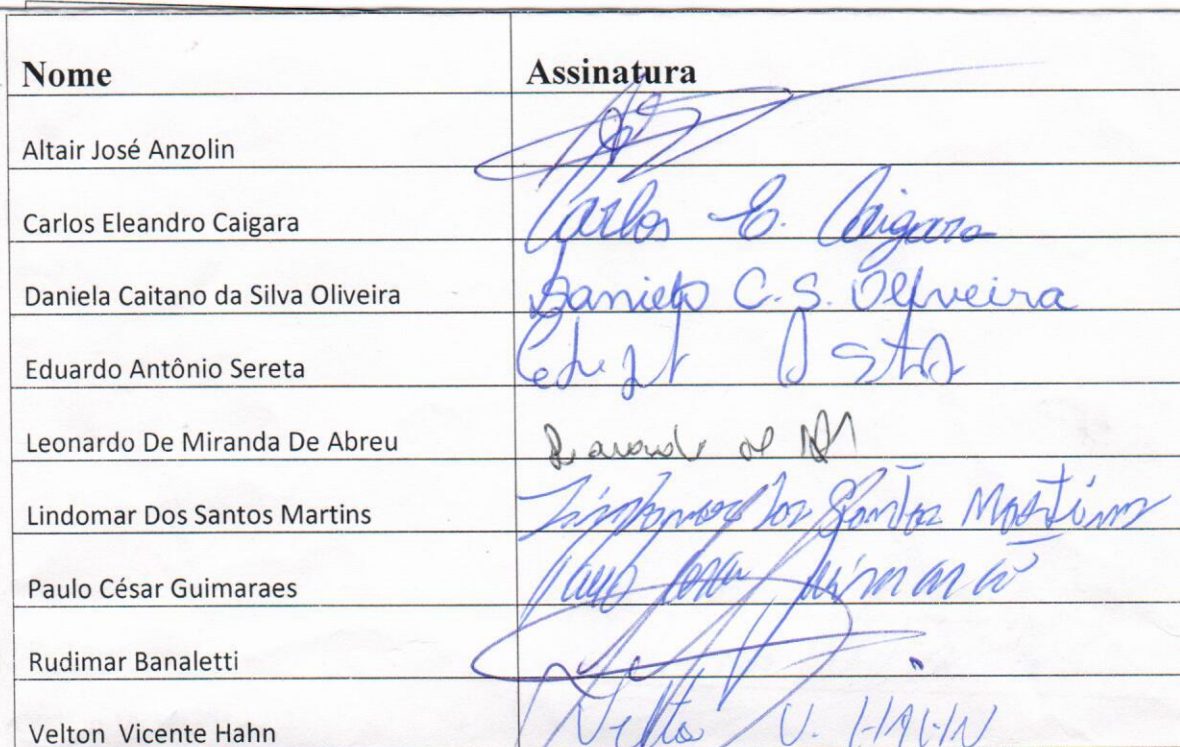 Nome Assinatura
Altair José Anzolin
Carlos Eleandro Caigara Carlos E. Caigara
Daniela Caitano da Silva Oliveira Daniela C. S. Oliveira
Eduardo Antônio Sereta
Leonardo De Miranda De Abreu
Lindomar Dos Santos Martins Lindomar dos Santos Martins
Paulo César Guimaraes
Rudimar Banaletti
Velton Vicente Hahn Velton V. HAHN